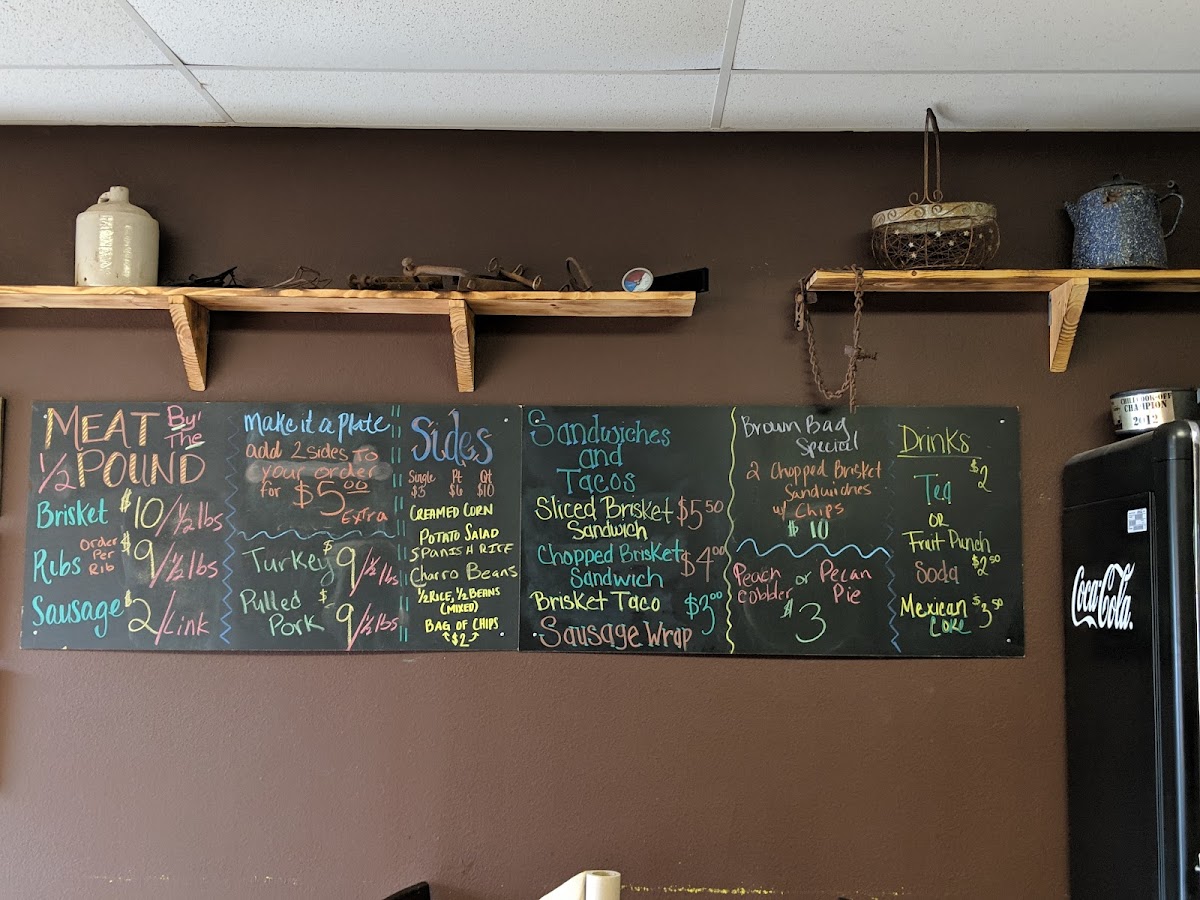 MEAT By'
The
1/2 POUND
Brisket $10/½lbs
Ribs order Per Rib $9/½lbs
Sausage $2/Link
Make it a Plate
add 2 sides To
your order
for $5.00
Extra
Turkey $9/½lbs
Pulled
Pork $9/½lbs
Sides
Single Pt Qt
$3 $6 $10
CREAMED CORN
POTATO SALAD
SPANISH RICE
Charro Beans
½ RICE, ½ BEANS
(MIXED)
BAG OF CHIPS
$2
Sandwiches
and
Tacos
Sliced Brisket $5.50
Sandwich
Chopped Brisket $4.00
Sandwich
Brisket Taco $3.00
Sausage Wrap
Brown Bag
Special
2 Chopped Brisket
Sandwiches
w/ Chips
$10
Peach or Pecan
Cobbler Pie
$3
Drinks
$2
Tea
OR
Fruit Punch
Soda $2.50
Mexican $3.50
Coke
CHILI COOK-OFF
CHAMPION
2012
Coca-Cola